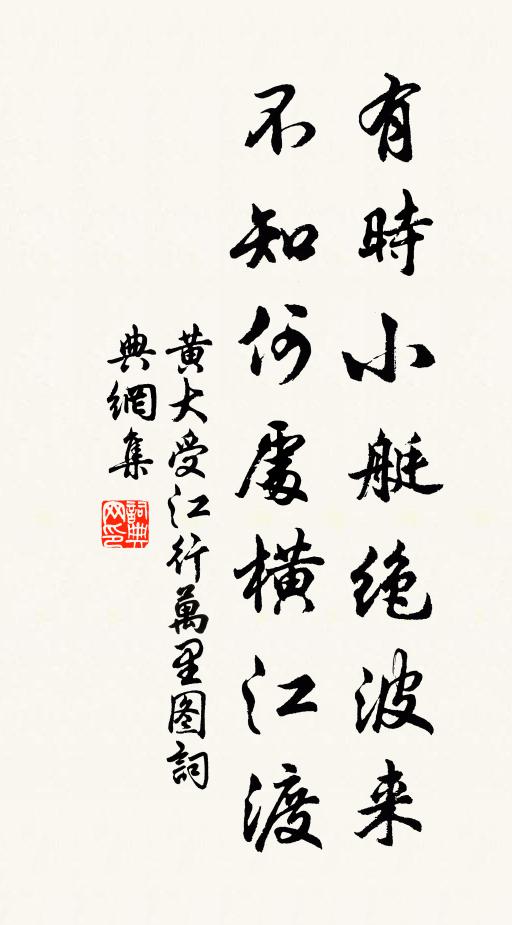 有時小艇绝波来
不知何處横江渡
黄大受江行萬里图詞
典網集
詞典网印